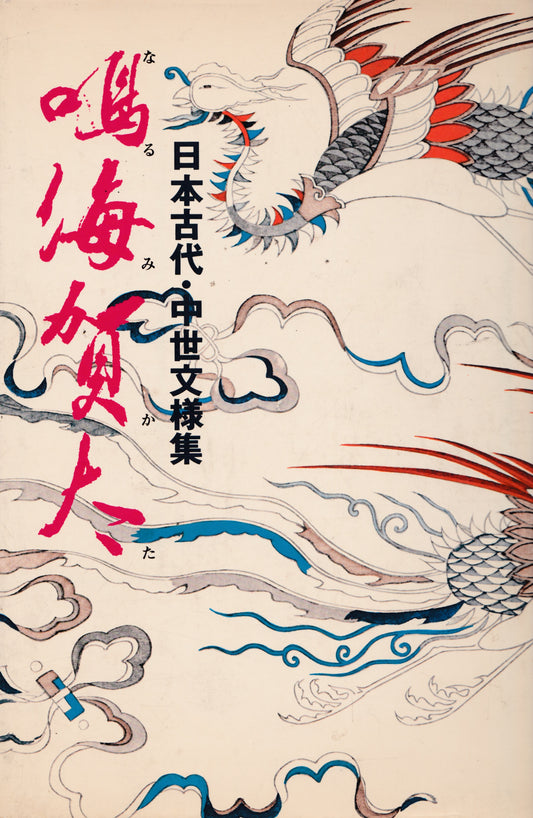 日本古代・中世文様集
鳴海賀太
なるみかた